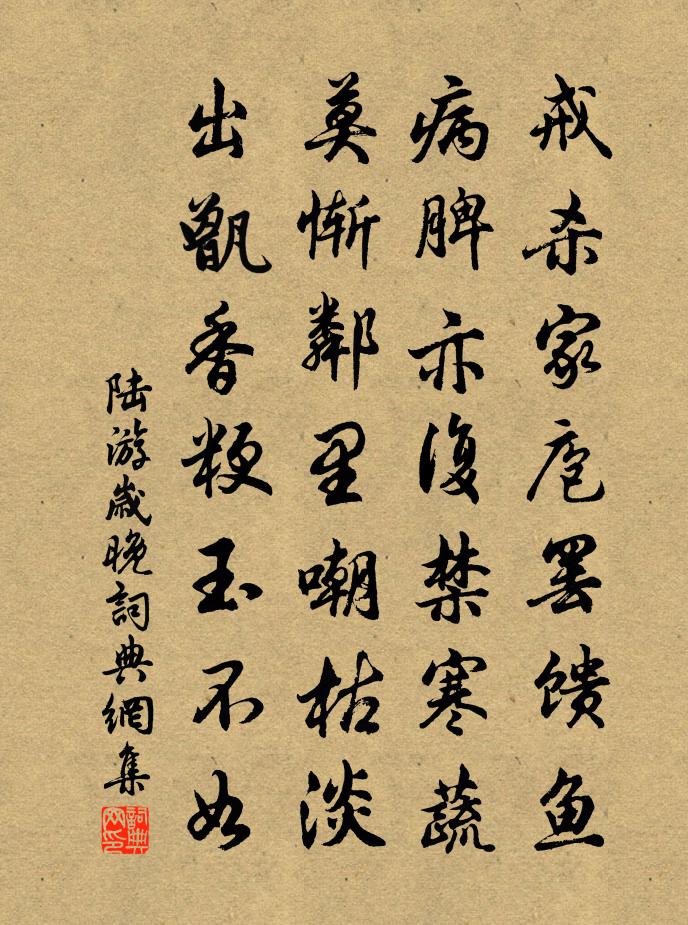 戒杀家庖罢馈鱼
病脾亦复禁寒蔬
莫惭鄰里嘲枯淡
出甑香粳玉不如
陆游歲晚詞典網集
詞典网印